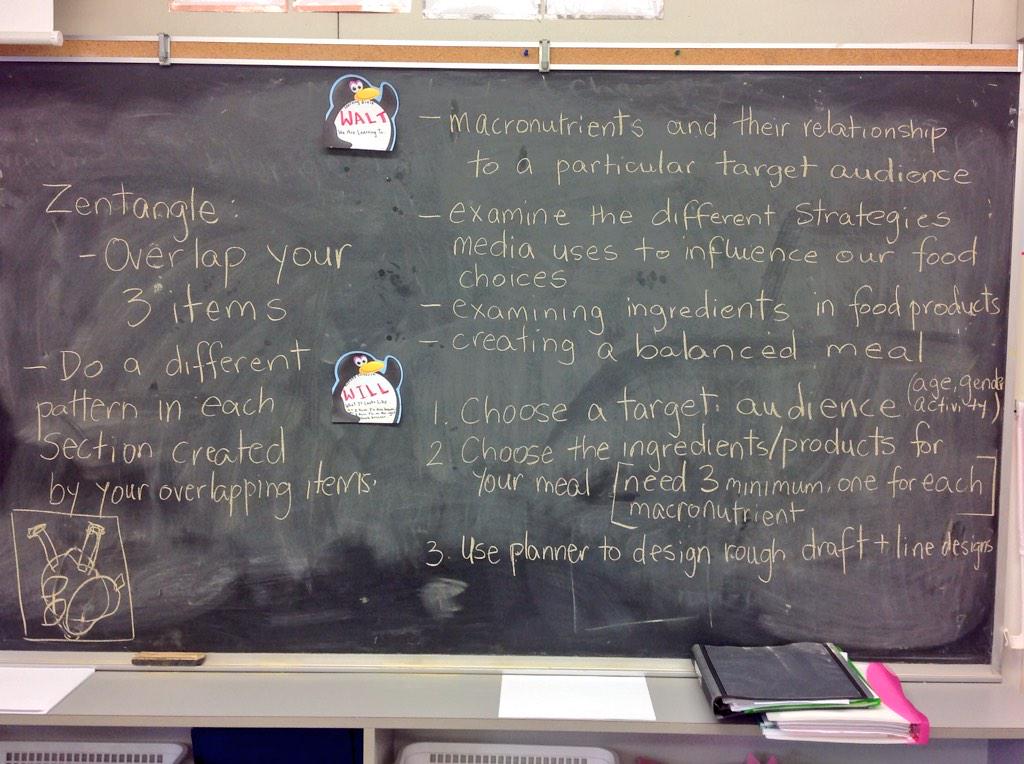 Zentangle:
- Overlap your
3 items
- Do a different
pattern in each
section created
by your overlapping items.
WALT
We Are Learning To
- macronutrients and their relationship
to a particular target audience
- examine the different strategies
media uses to influence our food
choices
- examining ingredients in food products
- creating a balanced meal
WILL
What It Looks Like
1. Choose a target audience (age, gender
activity)
2. Choose the ingredients/products for
your meal [need 3 minimum, one for each
macronutrient]
3. Use planner to design rough draft + line designs